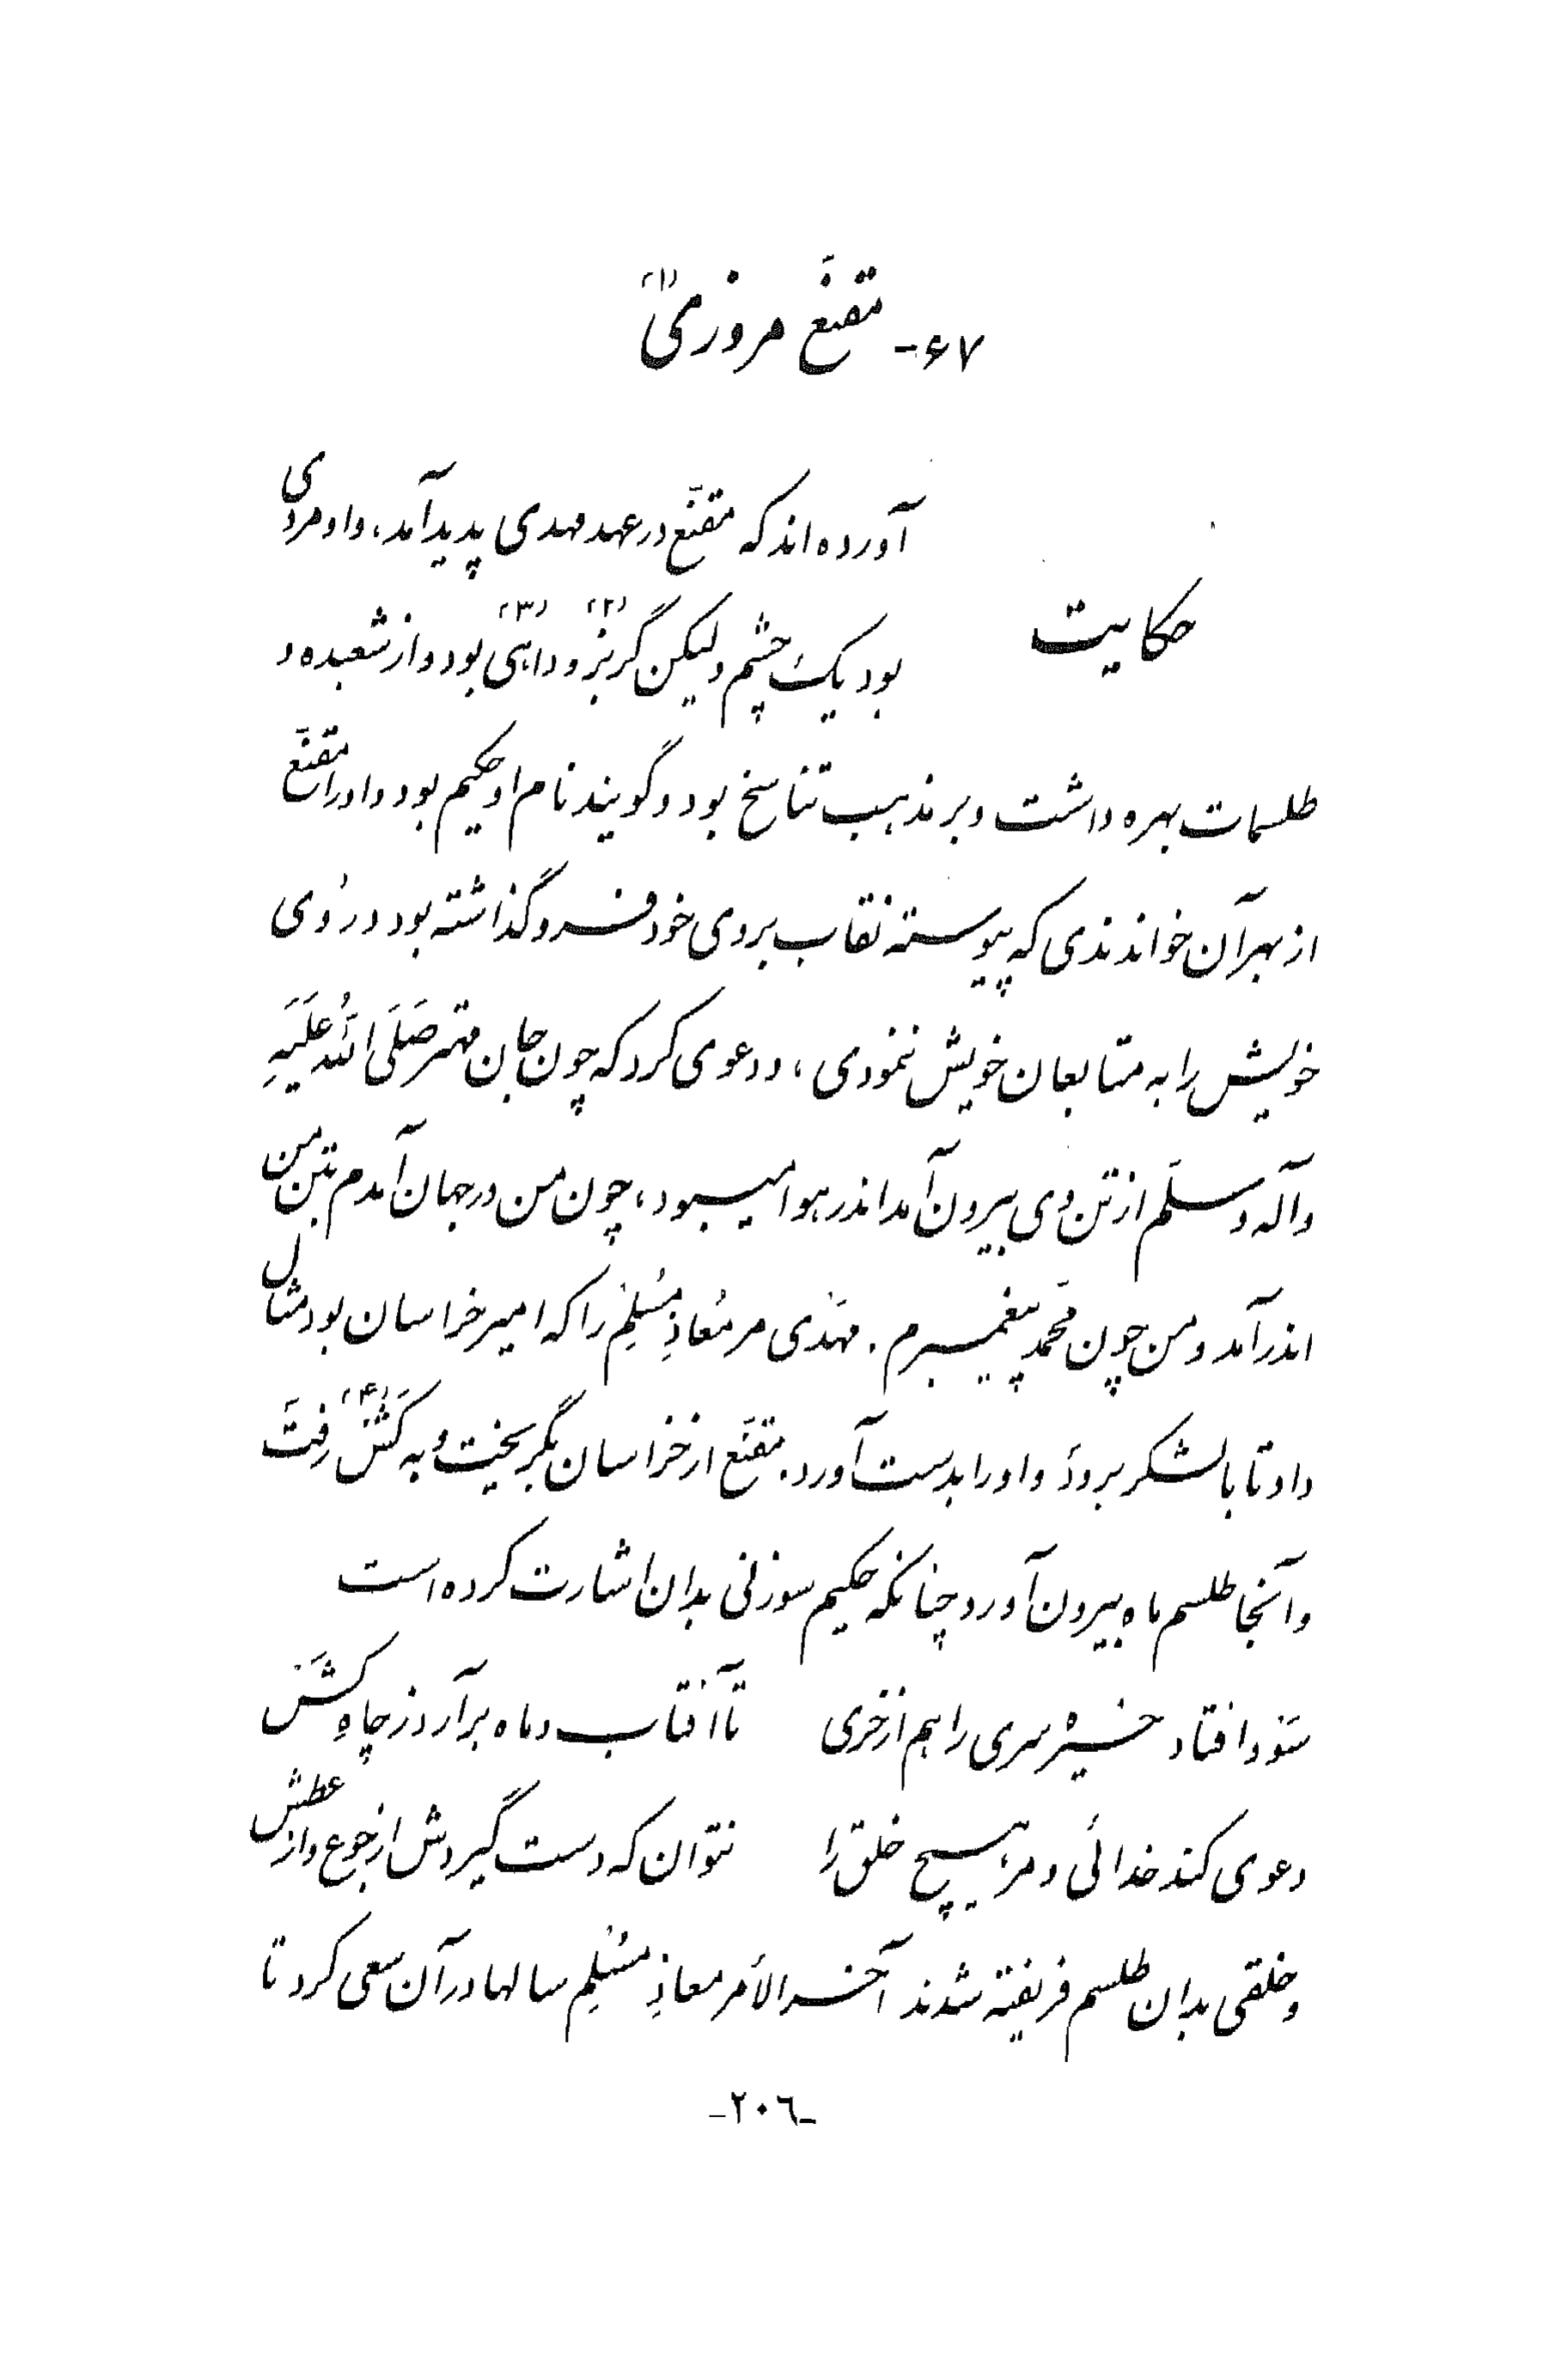 ۶۷- مقنَّع مروزی (۱)
آورده‌اند که مقنّع در عهد مهدی پدید آمد، و او مردی
حکایت
بود یک چشم ولیکن گربز (۲) و داهی (۳) بود و از شعبده و
طلسمات بهره داشت و بر مذهب تناسخ بود و گویند نام او حکیم بود و او را مقنّع
از بهر آن خواندندی که پیوسته نقاب بروی خود فرو گذاشته بود و رُوی
خویش را به متابعان خویش ننمودی، و دعوی کرد که چون جان مهتر صَلَی اللهُ عَلَیَهِ
وآله وسلَّم از تن وی بیرون آمد اندر هوا میبود، چون من در جهان آمدم بتن من
اندر آمد و من چون محمّد پیغمبرم. مهْدی مر مُعاذِ مُسْلِمْ را که امیر خراسان بود مثال
داد تا با لشکر برود و او را بدست آورد. مقنّع از خراسان بگریخت و به کَشْ (۴) رفت
و آنجا طلسم ماه بیرون آورد چنانکه حکیم سوزنی بدان اشارت کرده است
سَودا فتاد خیره سری را هم از خری تا آفتاب و ماه برآرد ز چاهِ کَشْ
دعوی کند خدائی و مر هیچ خلق را نتوان که دست گیردش از جوع و از عطش
و خلقی بدان طلسم فریفته شدند آخر الأمر معاذِ مُسْلِم سالها در آن سعی کرد تا
-۲۰۶-